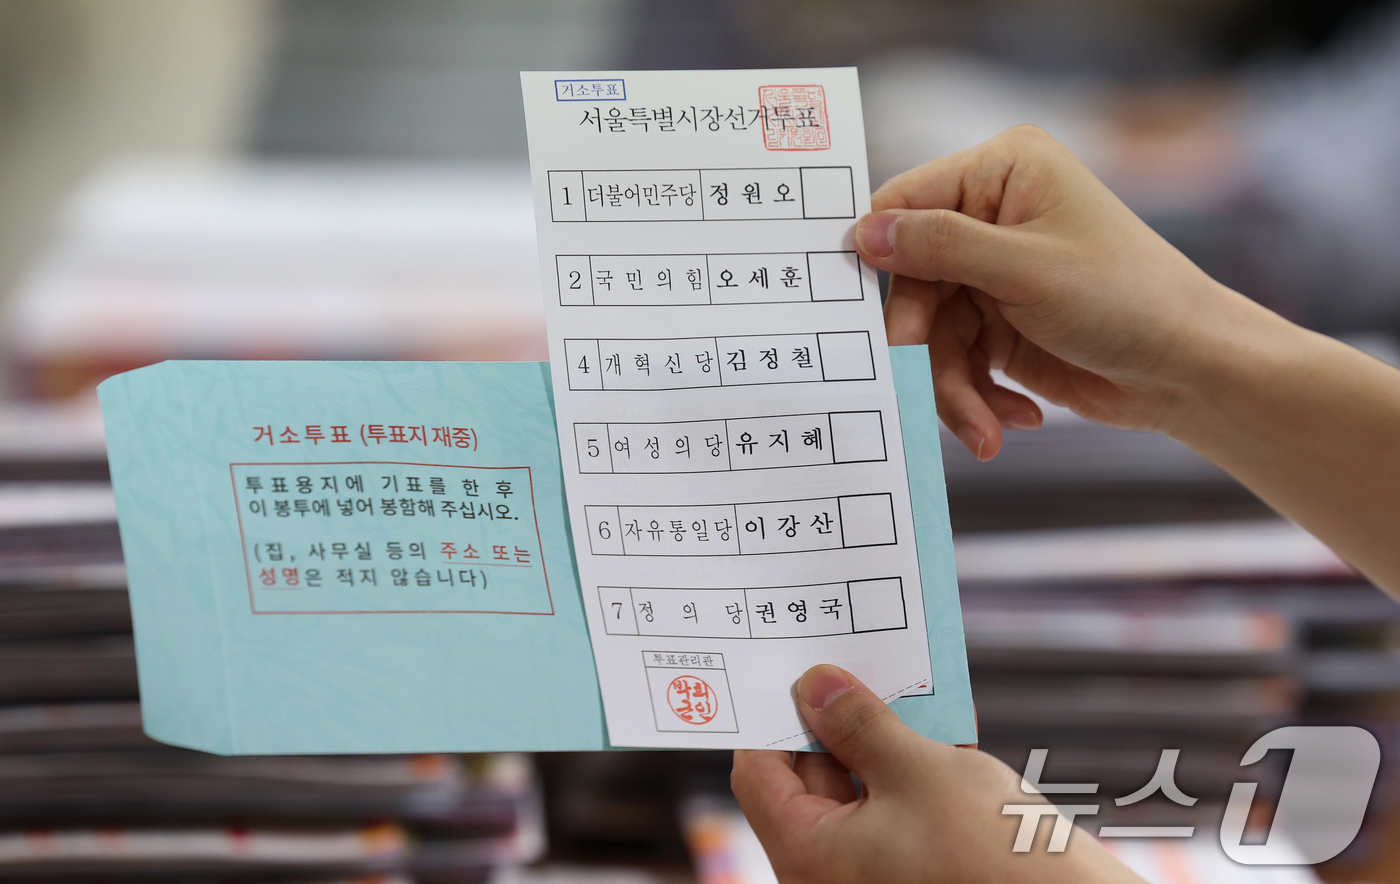 거소투표
서울특별시장선거투표
1 더불어민주당 정원오
2 국민의힘 오세훈
4 개혁신당 김정철
5 여성의당 유지혜
6 자유통일당 이강산
7 정의당 권영국
투표관리관
박희
근인
거소투표 (투표지 재중)
투표용지에 기표를 한 후
이 봉투에 넣어 봉함해 주십시오.
(집, 사무실 등의 주소 또는
성명은 적지 않습니다)
뉴스1